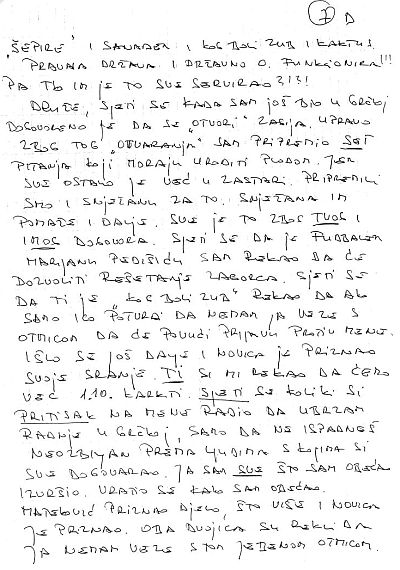 7 D
"ŠEPIRE" I SANADER I KOG BOLI ZUB I KAKTUS.
PRAVNA DRŽAVA I DRŽAVNO O. FUNKCIONIRA!!!
PA TKO IM JE TO SVE SERVIRAO?!?!
DRUŽE, SJETI SE KADA SAM JOŠ BIO U GRČKOJ
DOGOVORENO JE DA SE „OTVORI" ZAGIJA. UPRAVO
ZBOG TOG „OTVARANJA" SAM PRIPREMIO SET
PITANJA KOJI MORAJU URODITI PLODOM. JER
SVE OSTALO JE VEĆ U ZASTARI. PRIPREMILI
SMO I SNJEŽANU ZA TO. SNJEŽANA IM
POMAŽE I DALJE. SVE JE TO ZBOG TVOG I
MOG DOGOVORA. SJETI SE DA JE FUDBALER
MARIJANU PEDIŠIĆU SAM REKAO DA ĆE
DOZVOLITI REŠETANJE ZAGORCA. SJETI SE
DA TI JE „KOG BOLI ZUB" REKAO DA AKO
SAMO IKO POTVRĐA DA NEMAM JA VEZE S
OTMICOM DA ĆE POVUĆI PRIJAVU PROTIV MENE.
IŠLO SE JOŠ DALJE I NOVICA JE PRIZNAO
SVOJE SRANJE. TI SI MI REKAO DA ĆEMO
VEĆ 1.10. KARKTI. SJETI SE KOLIKI SI
PRITISAK NA MENE RADIO DA UBRZAM
RADNJE U GRČKOJ, SAMO DA NE ISPADNEŠ
NEOZBILJAN PREMA LJUDIMA S KOJIMA SI
SVE DOGOVARAO. JA SAM SVE ŠTO SAM OBEĆAO
IZVRŠIO. VRATIO SE KAKO SAM OBEĆAO.
MATEKOVIĆ PRIZNAO DJELO, ŠTO VIŠE I NOVICA
JE PRIZNAO. OBA DVOJICA SU REKLI DA
JA NEMAM VEZE S TOM JEBENOM OTMICOM.